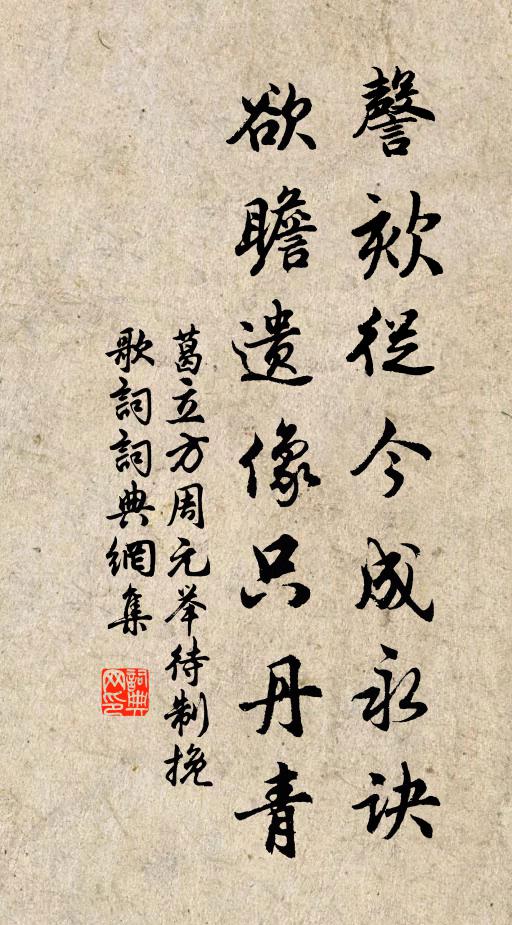 謦欬從今成永訣
欲瞻遺像只丹青
葛立方周元举待制挽
歌詞詞典網集
詞典网印